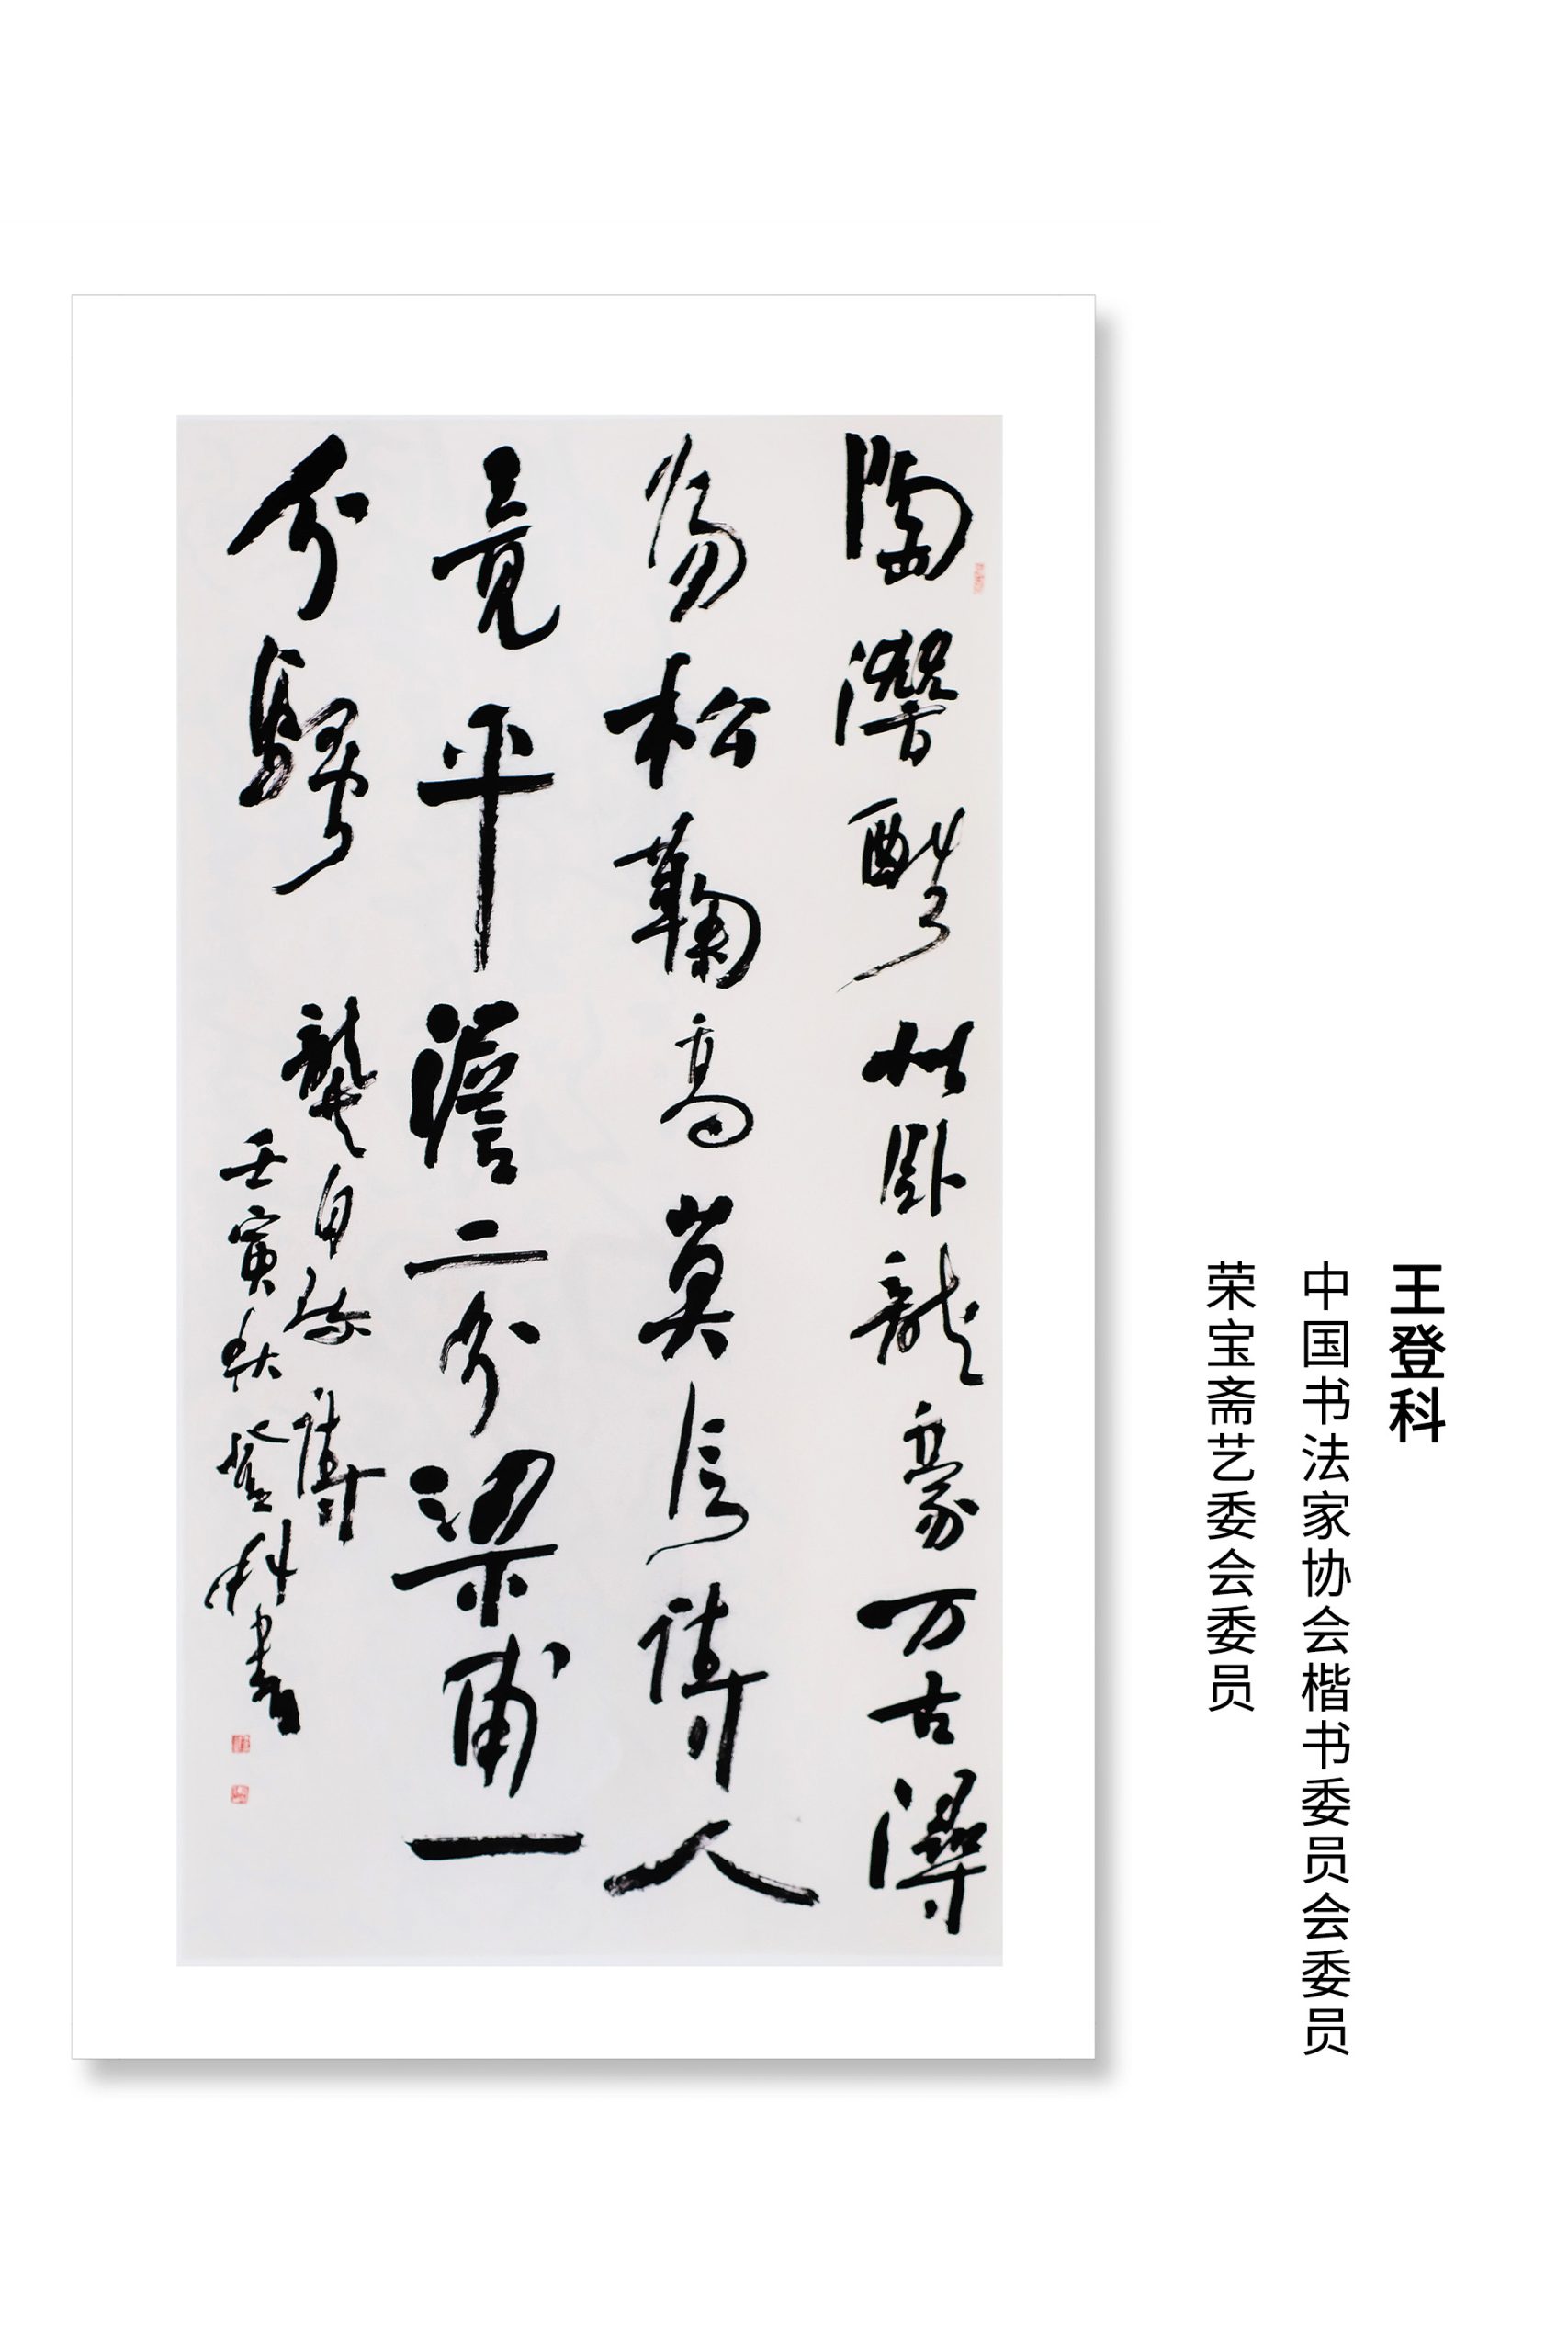 王登科
中国书法家协会楷书委员会委员
荣宝斋艺委会委员
陶潛酷似卧龍豪万古潯
陽松鞠高莫信詩人
竟平澹二分梁甫一
分騷 龔自珍詩
壬寅秋登科書